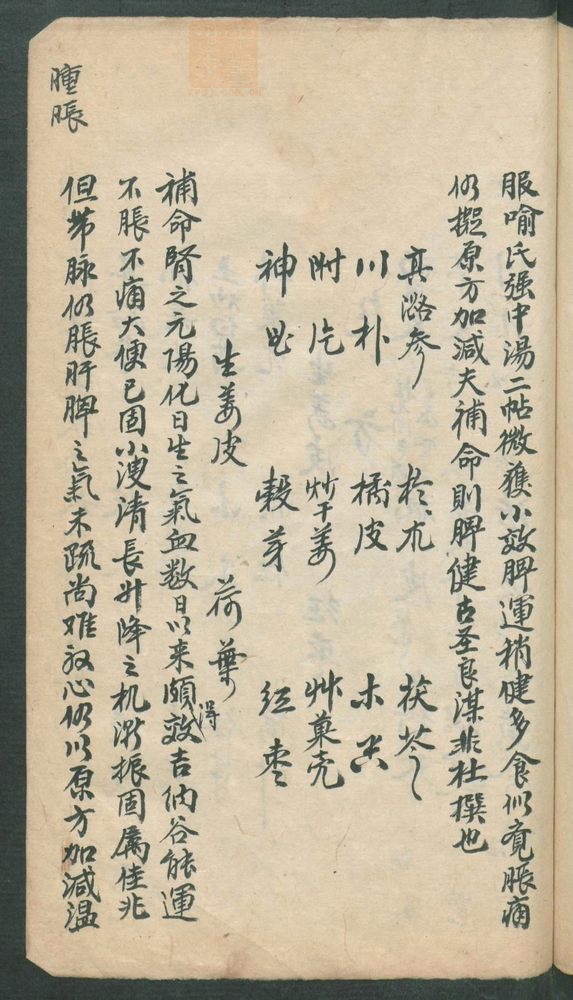 腫脹
服喻氏强中湯二帖微獲小效脾運稍健多食仍覺脹痛
仍擬原方加減夫補命則脾健古圣良谋非杜撰也
真潞參 於朮 茯苓
川朴 橘皮 木香
附片 炒干姜 艸菓壳
神曲 穀芽 红棗
生姜皮 荷葉
補命腎之元陽化日生之氣血数日以来頗得效吉纳谷能運
不脹不痛大便已固小溲清長升降之机漸振固属佳兆
但带脉仍脹肝脾之氣未疏尚难放心仍以原方加減温